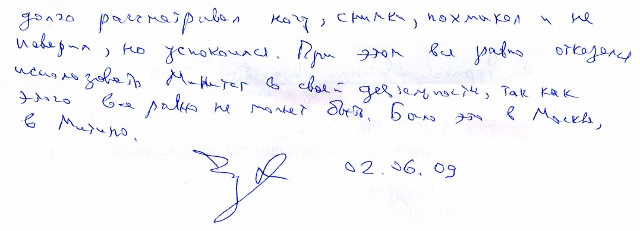 долго рассматривал ногу, снимки, похмыкал и не
поверил, но успокоился. При этом все равно отказался
использовать Минитег в своей деятельности, так как
этого все равно не может быть. Было это в Москве,
в Митино.
02.06.09